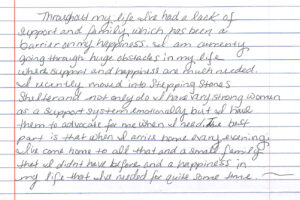 Throughout my life I've had a lack of
support and family, which has been a
barrier on my happiness. I am currently
going through huge obstacles in my life
where support and happiness are much needed.
I recently moved into Stepping Stones
Shelter and not only do I have very strong women
as a support system emotionally but I have
them to advocate for me when I need. The best
part is that when I arrive home every evening,
I've come home to all that and a small family
that I didn't have before and a happiness in
my life that I've needed for quite some time.